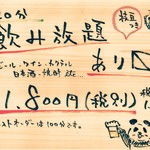 20分
飲み放題
枝豆つき
ビール、ワイン、カクテル
日本酒、焼酎 etc...
あり
1,800円(税別)
ストオーダーは100分です。